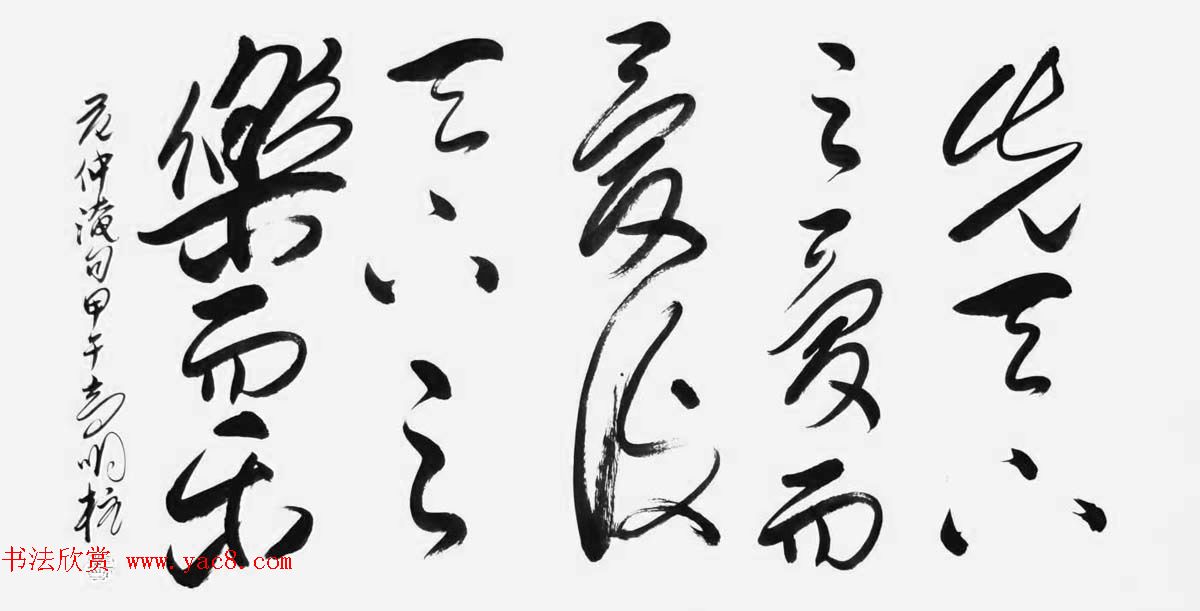 先天下
之憂而
憂後
天下之
樂而樂
范仲淹句甲午高明柱
书法欣赏 www.yac8.com